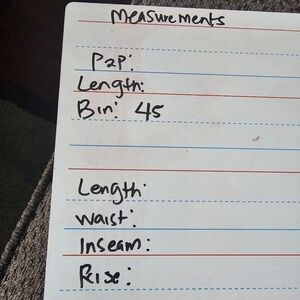 Measurements
P2P:
Length:
Bin: 45
Length:
Waist:
Inseam:
Rise: